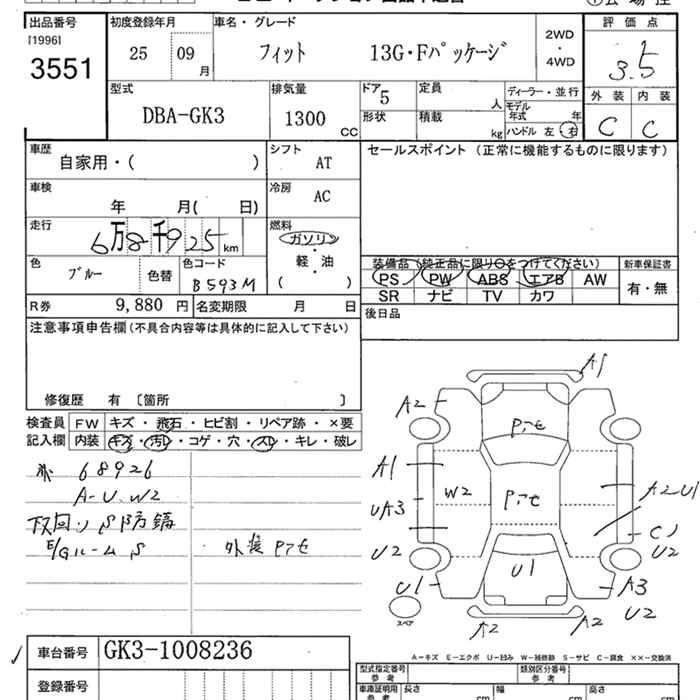 出品番号 [1996] 3551
初度登録年月 25 09 月
車名・グレード フィット 13G・Fパッケージ
2WD・4WD
評価点 3.5
外装 内装
C C
型式 DBA-GK3
排気量 1300 CC
ドア 5
定員 人
ディーラー・並行
モデル年式 年
形状
積載 kg
ハンドル 左 右
車歴 自家用・( )
シフト AT
セールスポイント (正常に機能するものに限ります)
車検 年 月( 日)
冷房 AC
走行 6万8千925 km
燃料 ガソリン 軽・油 ( )
色 ブルー 色替
色コード B593M
装備品 (純正品に限り○をつけてください)
新車保証書
PS PW ABS エアB AW
有・無
SR ナビ TV カワ
R券 9,880 円
名変期限 月 日
後日品
注意事項申告欄 (不具合内容等は具体的に記入して下さい)
修復歴 有 〔箇所 〕
検査員 FW キズ・飛石・ヒビ割・リペア跡・×要
記入欄 内装 キズ・汚レ・コゲ・穴・スレ・キレ・破レ
68926
A-U.W2
下回り S 防錆
E/Gルーム S
外装 Pアセ
A1
A2
Pアセ
A1
W2
Pアセ
A2U1
UA3
C1
U2
U2
U1
U1
A3
U2
スペア
A2
A2
車台番号 GK3-1008236
登録番号
A-キズ E-エクボ U-凹み W-補修跡 S-サビ C-腐食 ××-交換済
型式指定番号 参考
類別区分番号 参考
車庫証明用 参考
長さ cm
幅 cm
高さ cm